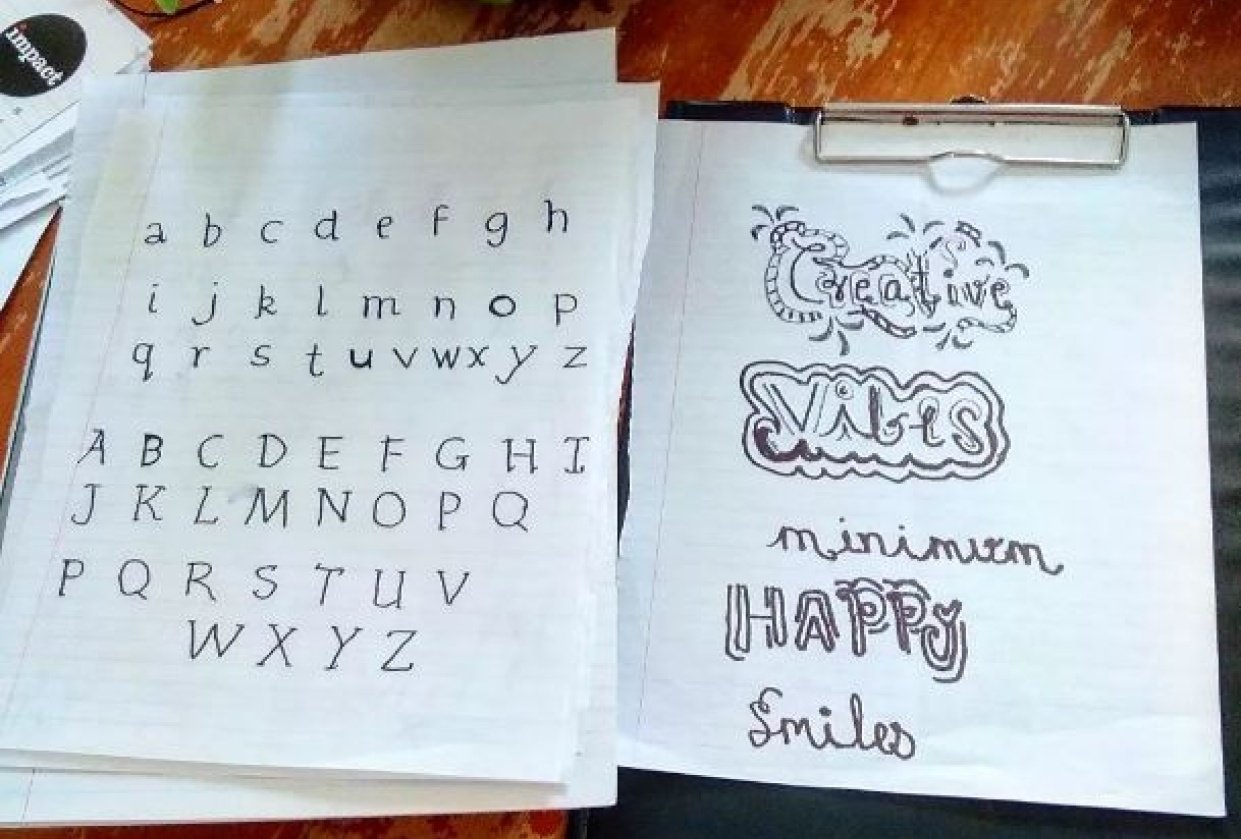 impact
a b c d e f g h
i j k l m n o p
q r s t u v w x y z
A B C D E F G H I
J K L M N O P Q
P Q R S T U V
W X Y Z
Creative
Vibes
minimum
HAPPy
Smiles